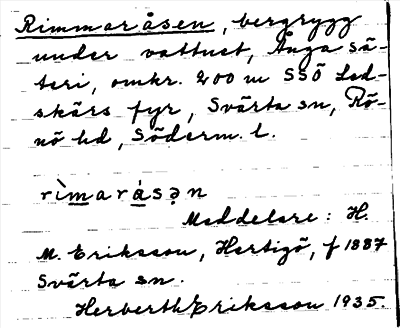 Rimmaråsen, bergrygg
under vattnet, Ånga sä-
teri, omkr. 200 m SSÖ Led-
skärs fyr, Svärta sn, Rö-
nö hd, Söderm. l.
rìmarásən
Meddelare: H.
M. Eriksson, Hertigö, f 1887
Svärta sn.
Herberth Eriksson 1935.